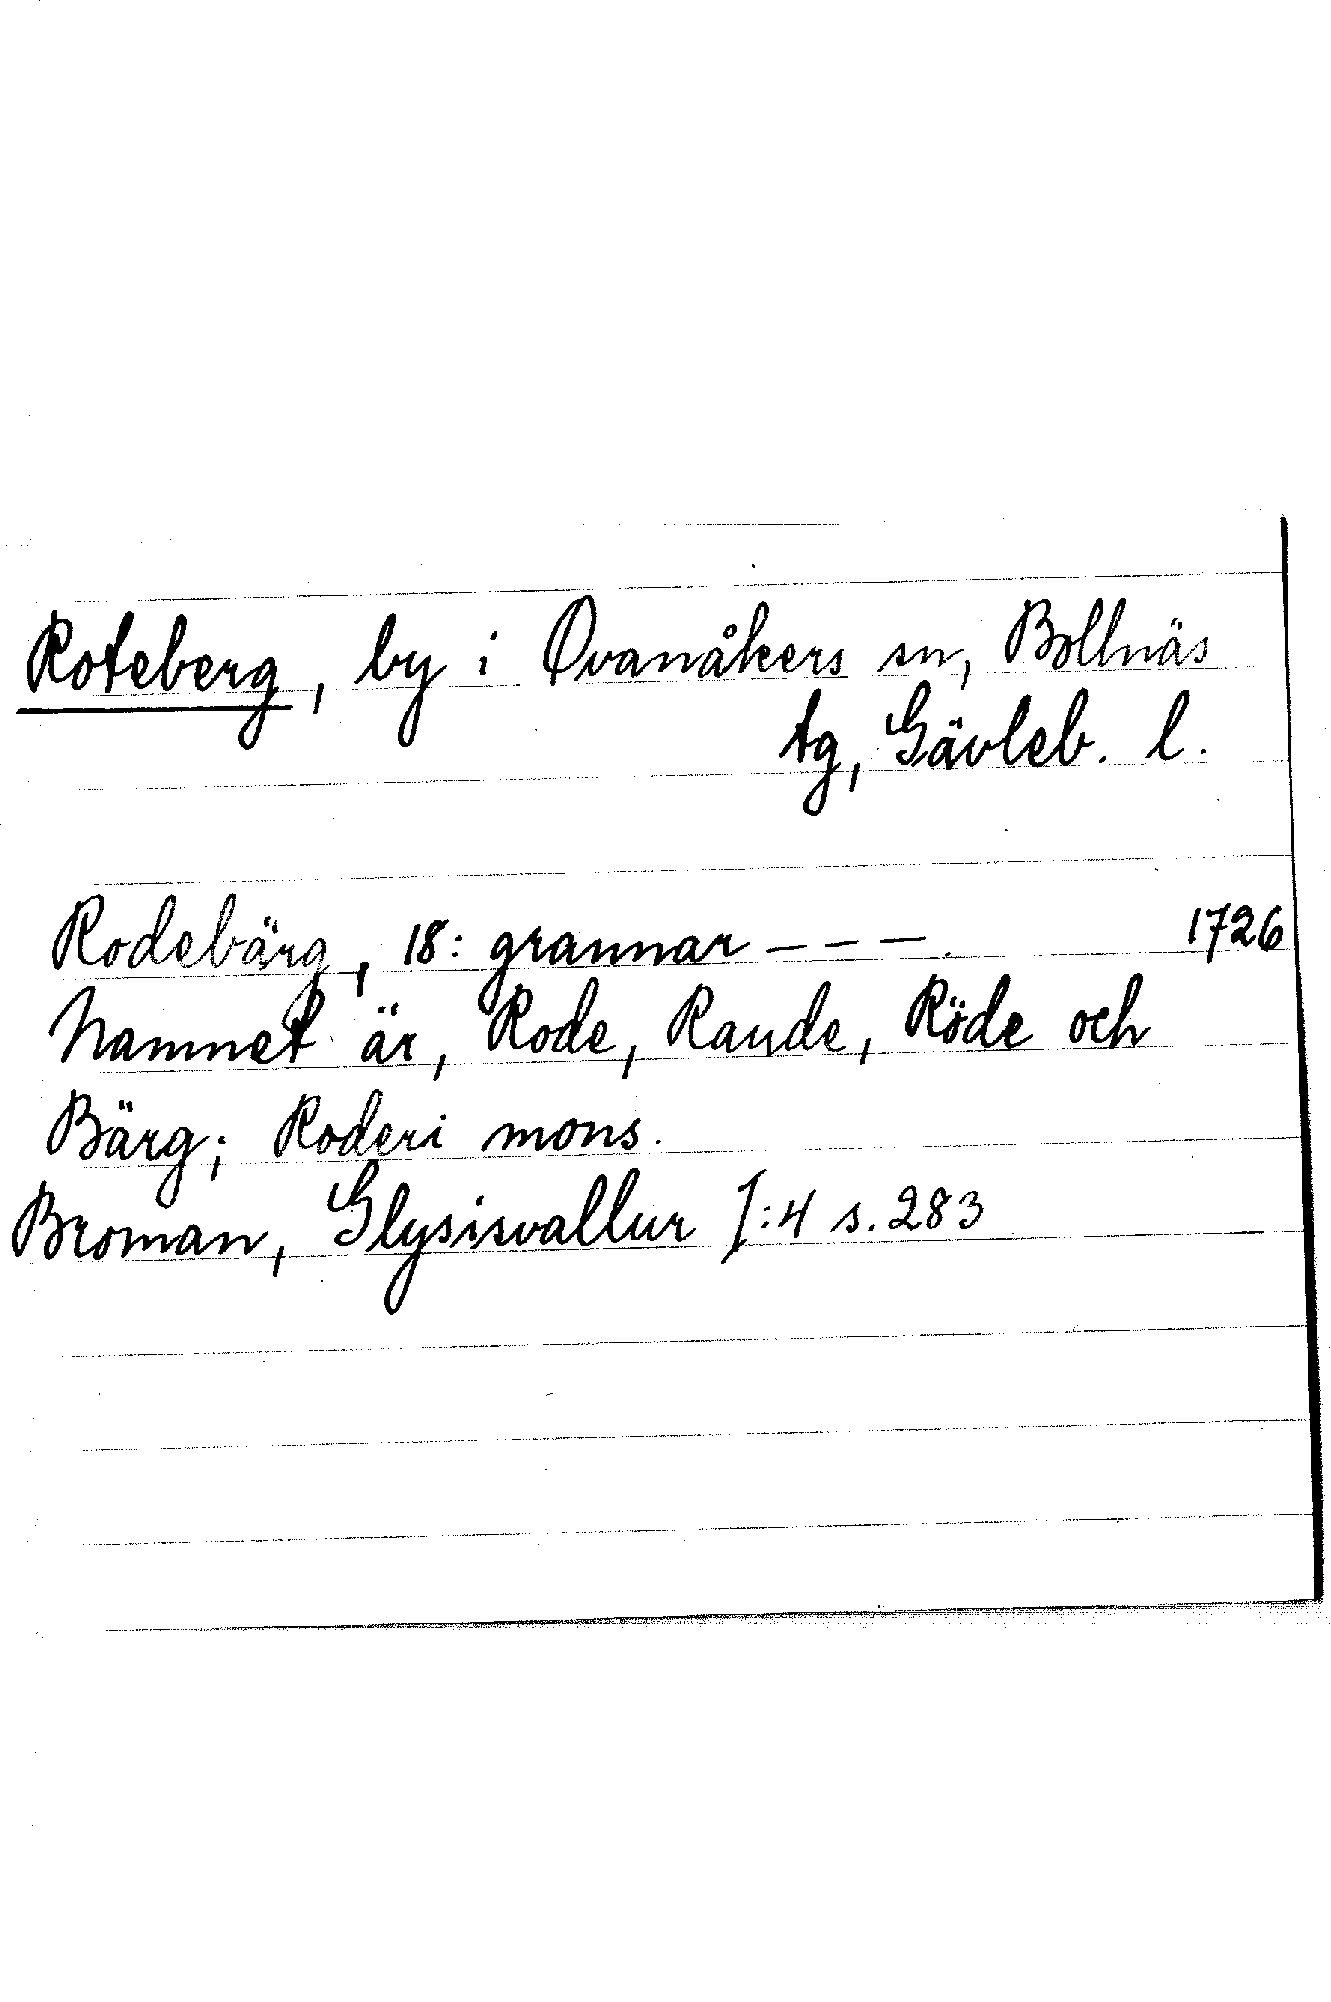 Roteberg, by i Ovanåkers sn, Bollnäs
tg, Gävleb. l.
Rodebärg, 18: grannar – – –. 1726
Namnet är, Rode, Raude, Röde och
Bärg; Roderi mons.
Broman, Glysisvallur I:4 s. 283